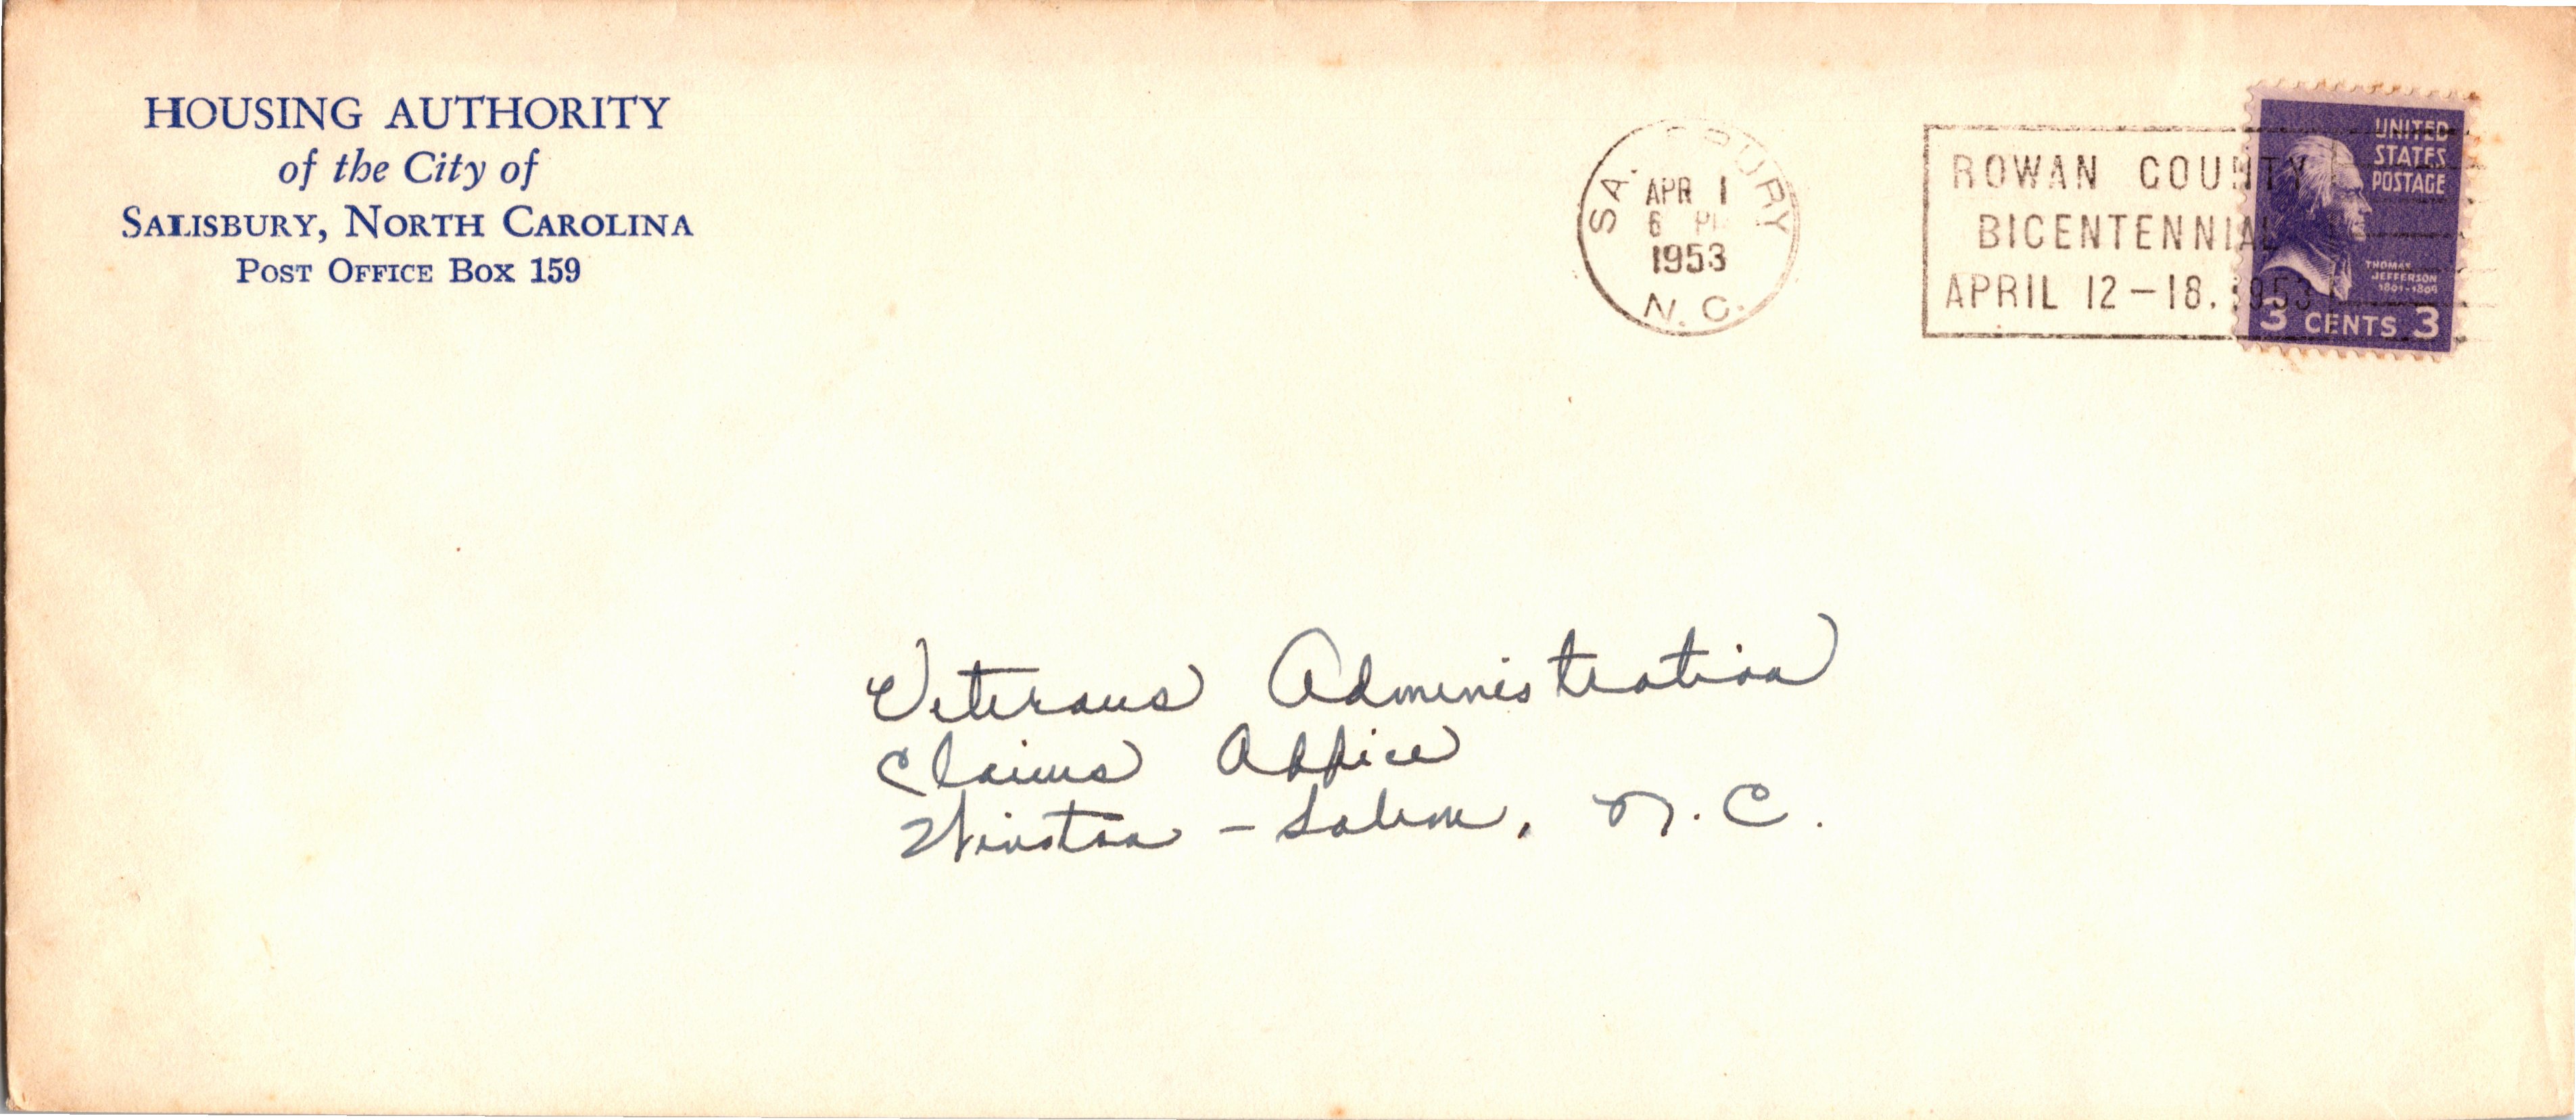 HOUSING AUTHORITY
of the City of
SALISBURY, NORTH CAROLINA
POST OFFICE BOX 159
SA. SBURY
APR 1
6 PM
1953
N. C.
ROWAN COUNTY
BICENTENNIAL
APRIL 12-18. 1953
UNITED
STATES
POSTAGE
THOMAS
JEFFERSON
1801-1809
3 CENTS 3
Veterans Administration
Claims Office
Winston - Salem, N. C.